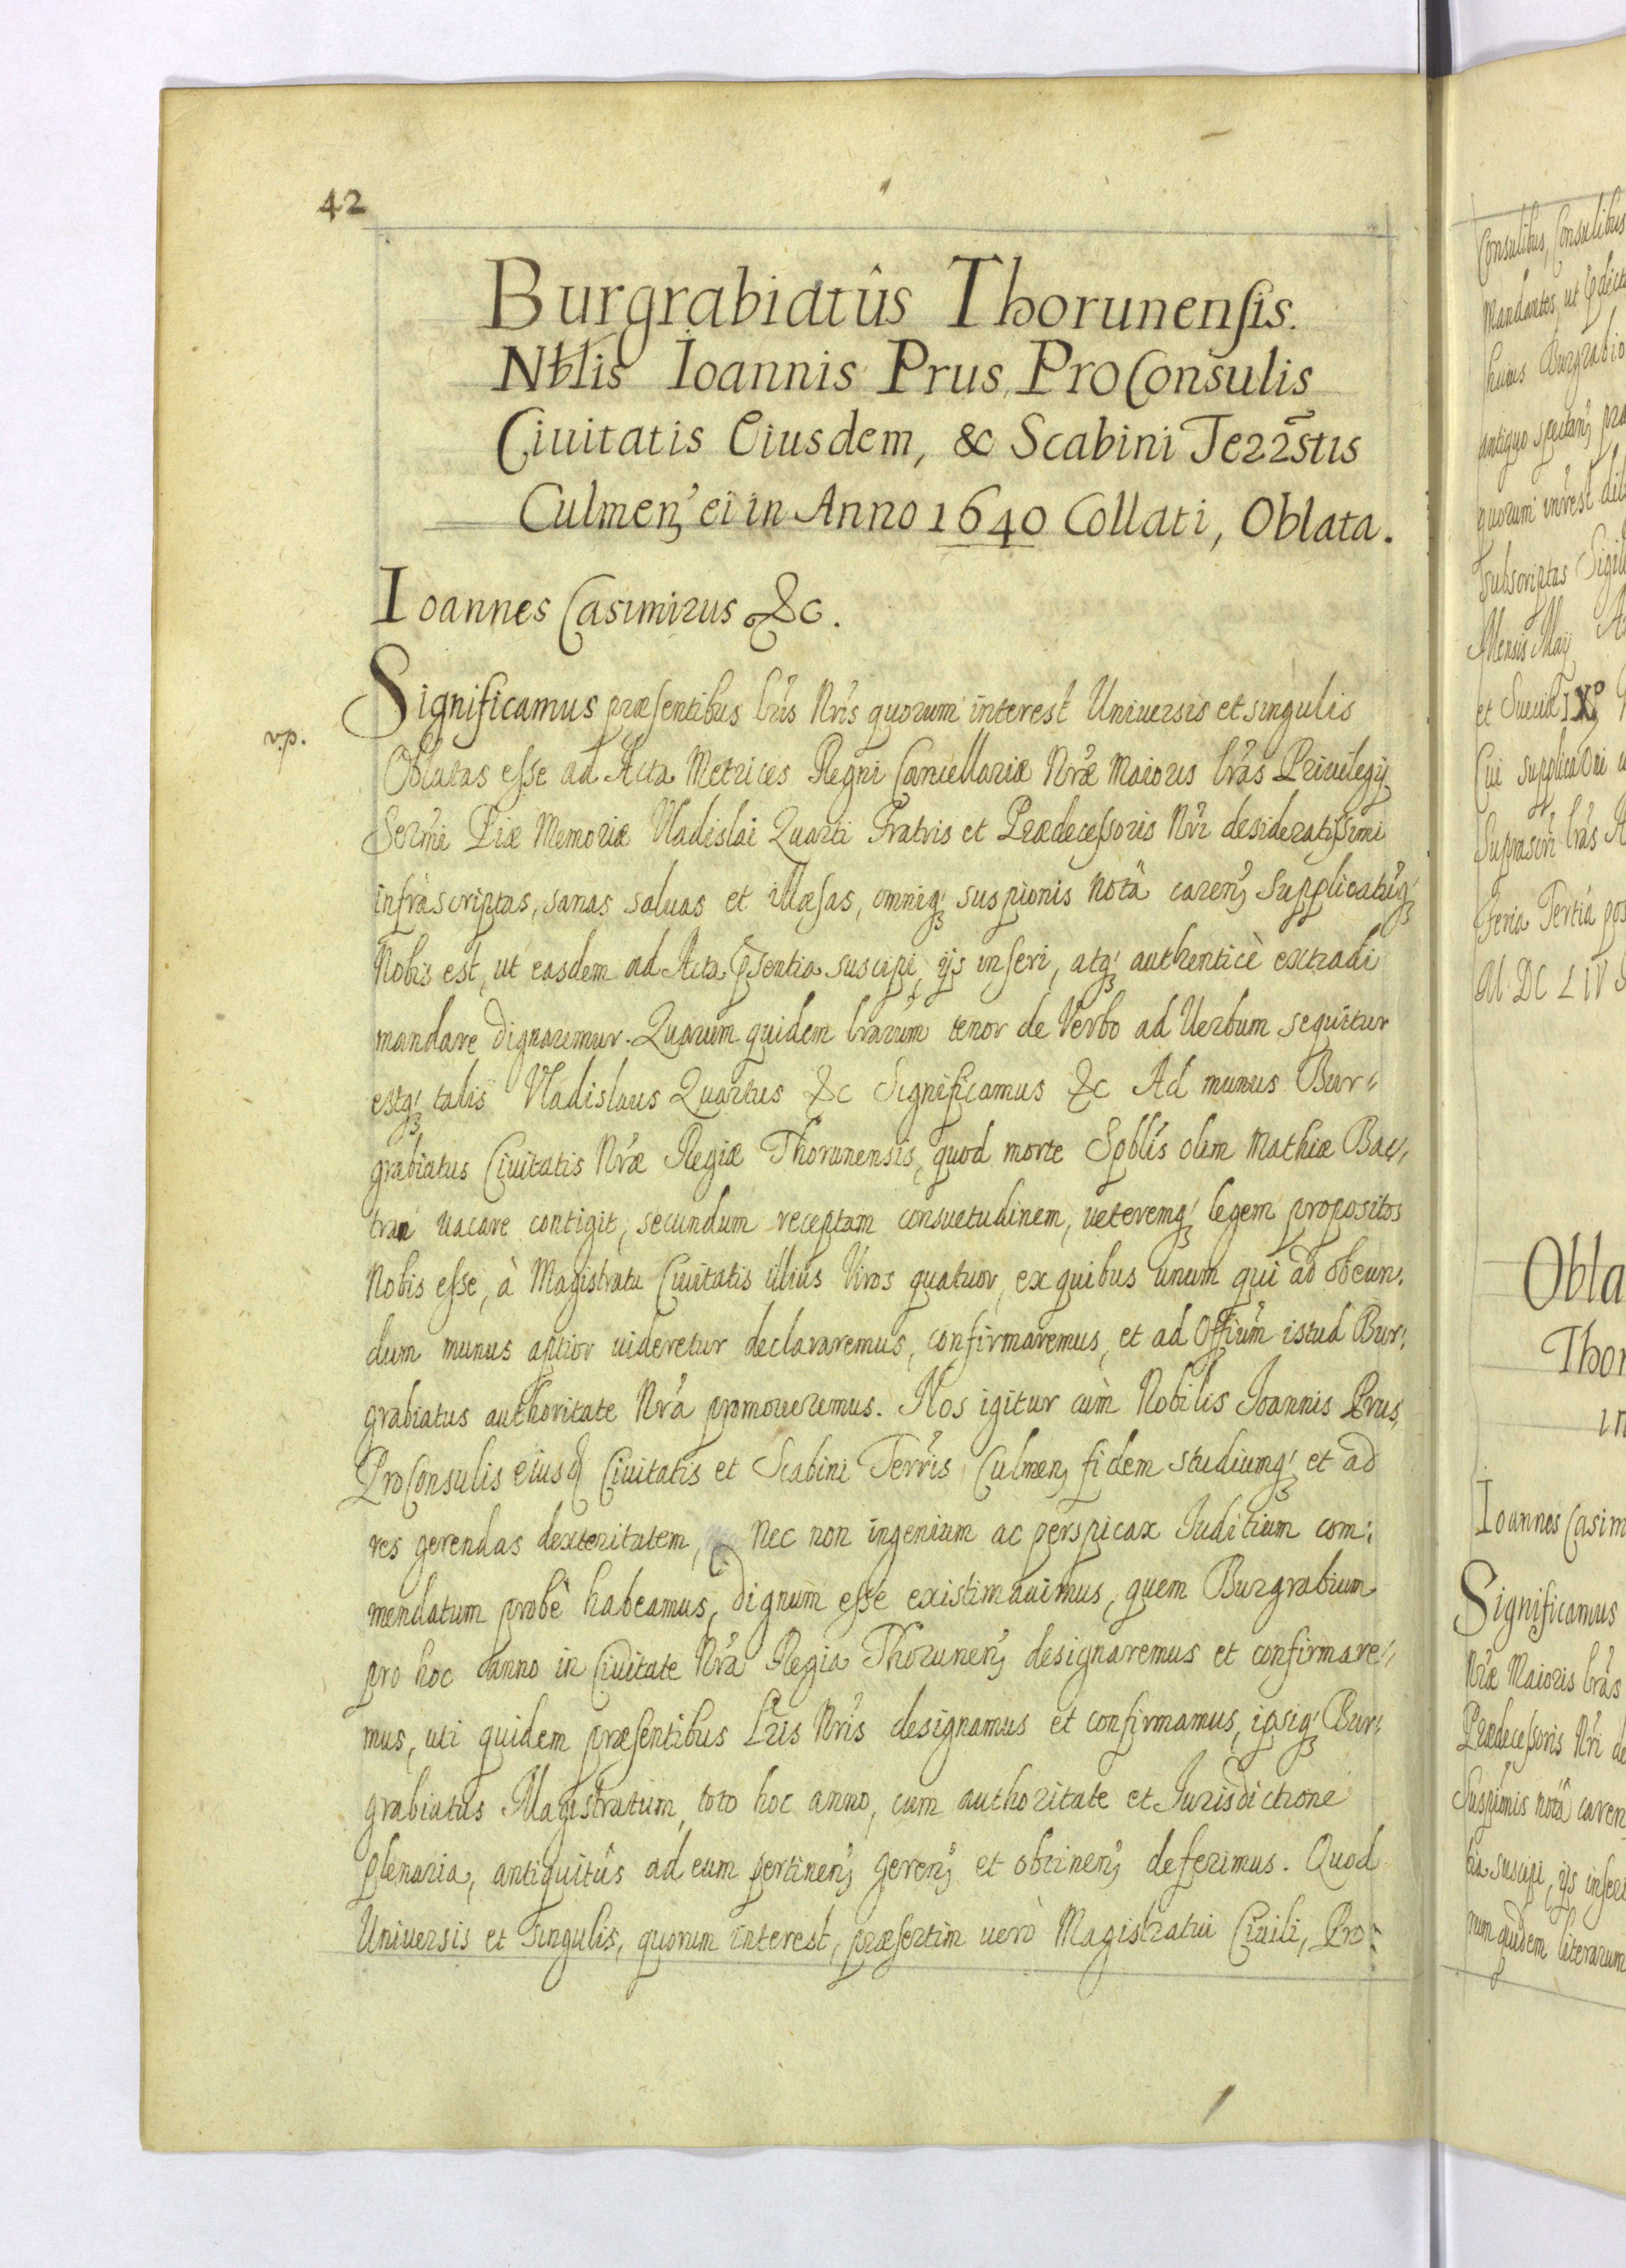 42
Burgrabiatûs Thorunensis.
Nblis Ioannis Prus, ProConsulis
Ciuitatis Eiusdem, & Scabini Terrstis
Culmen' ei in Anno 1640 Collati, Oblata.
Ioannes Casimirus &c.
Significamus præsentibus lris Nris quorum interest Uniuersis et singulis
v.p.
Oblatas esse ad Acta Metrices Regni Cancellariæ Nræ Maioris lras Priuilegij
Sermi Piæ Memoriæ Vladislai Quarti Fratris et Prædecessoris Nri desideratissimi
infrascriptas, sanas saluas et illæsas, omniq; suspionis notâ caren; supplicatũq;
Nobis est, ut easdem ad Acta pñsentia suscipi, ijs inseri, atq; authenticè extradi
mandare dignaremur. Quarum quidem lrarum tenor de Verbo ad Uerbum sequitur
estq; talis Vladislaus Quartus &c Significamus &c Ad munus Bur-
grabiatus Ciuitatis Nræ Regiæ Thorunensis, quod morte Spblis olim Mathiæ Bay-
tran uacare contigit, secundum receptam consuetudinem, ueteremq; legem propositos
Nobis esse, à Magistratu Ciuitatis illius Viros quatuor, ex quibus unum qui ad obeun-
dum munus aptior uideretur declararemus, confirmaremus, et ad Offium istud Bur-
grabiatus authoritate Nra promoueremus. Nos igitur cum Nobilis Ioannis Prus,
ProConsulis eiusd Ciuitatis et Scabini Terris Culmen; fidem studiumq; et ad
res gerendas dexteritatem, nec non ingenium ac perspicax Iuditium com-
mendatum probè habeamus, dignum esse existimauimus, quem Burgrabium
pro hoc anno in Ciuitate Nra Regia Thorunen; designaremus et confirmare-
mus, uti quidem præsentibus Lris Nris designamus et confirmamus, ipsiq; Bur-
grabiatus Magistratum, toto hoc anno, cum authoritate et Iurisdictione
plenaria, antiquitûs ad eum pertinen; geren; et obtinen; deferimus. Quod
Uniuersis et singulis, quorum interest, præsertim uerò Magistratui Ciuili, Pro-
Consulibus, Consulibus
Mandantes, ut
huius Burgrabio
antiquo
quorum
subscriptas Sigil
Mensis Maij
et Sueciæ IX
Cui supplicaoni
Suprascri lras
Feria Tertia pos
M DC LIV
Obla
Thor
in
Ioannes Casim
Significamus
Nræ Maioris lras
Prædecessoris Nri de
Suspionis notâ caren
tia suscipi, ijs inseri
rum quidem literarum